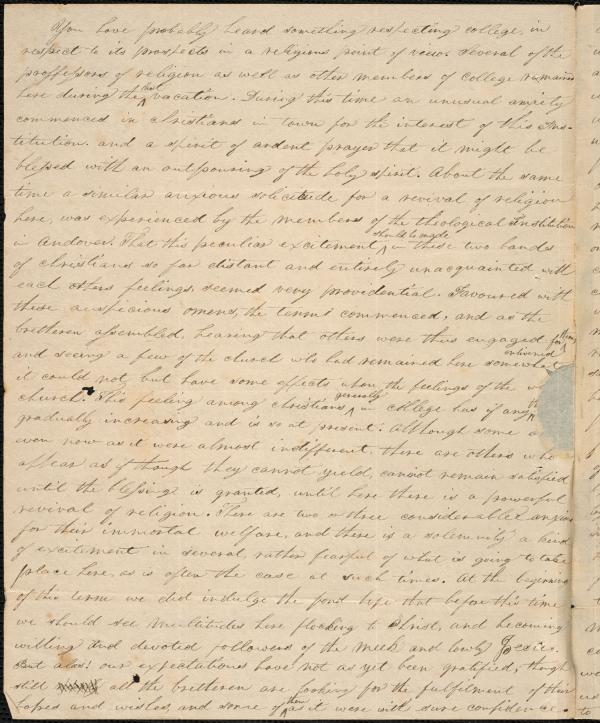 You have probably heard something respecting college, in
respect to its prospects in a religious point of view. Several of the
proffessors of religion as well as other members of college remained
here during the last vacation. During this time an unusual anxiety
commenced in christians in town for the interest of this Ins-
titution. and a spirit of ardent prayer that it might be
blessed with an outpouring of the holy spirit. About the same
time a similar anxious solicitude for a revival of religion
here, was experienced by the members of the theological Institution
in Andover. That this peculiar excitement, should be made in these two bands
of christians so far distant and entirely unacquainted with
each others feelings, seemed very providential. Favoured with
these auspicious omens, the term commenced, and as the
bretheren assembled, hearing that others were thus engaged for them
and seeing a few of the church who had remained here somewhat enlivened
it could not, but have some effects upon the feelings of the
church. This feeling among christians generally in college has if any
gradually increasing and is so at present. Although some
even now as it were almost indifferent, there are others who
appear as if though they cannot yield, cannot remain satisfied
until the blessing is granted, until here there is a powerful
revival of religion. There are two or three considerable anxious
for their immortal welfare, and there is a solemnity a kind
of excitement in several, rather fearful of what is going to take
place here, as is often the case at such times. At the beginning
of this term we did indulge the fond hope that before this time
we should see multitudes here flocking to Christ, and becoming
willing and devoted followers of the meek and lowly Jesus.
But alas! our expectations have not as yet been gratified, though
still all the bretheren are looking for the fulfilment of their
hopes and wishes, and some of them as it were with sure confidence.